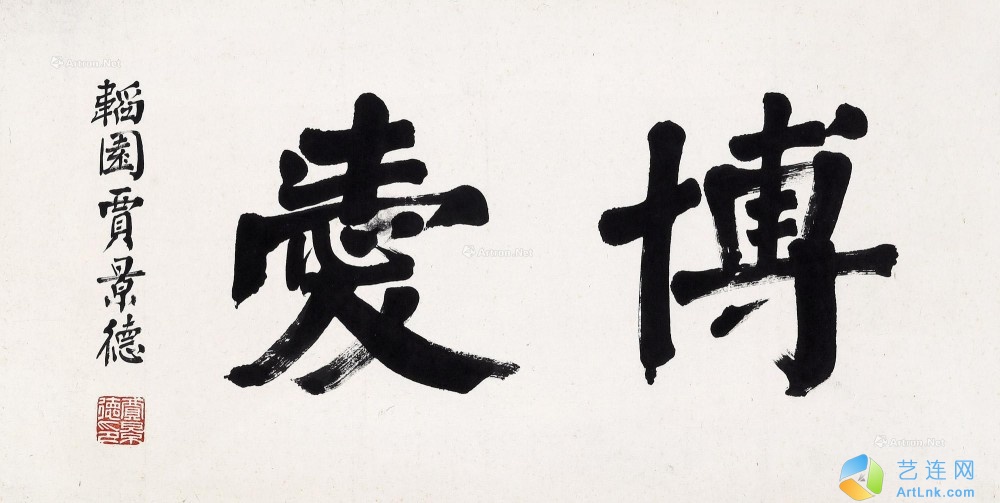 博愛
韜園賈景德
賈景德印
Artron.Net
Artron.Net
Artron.Net
艺连网
ArtLnk.com